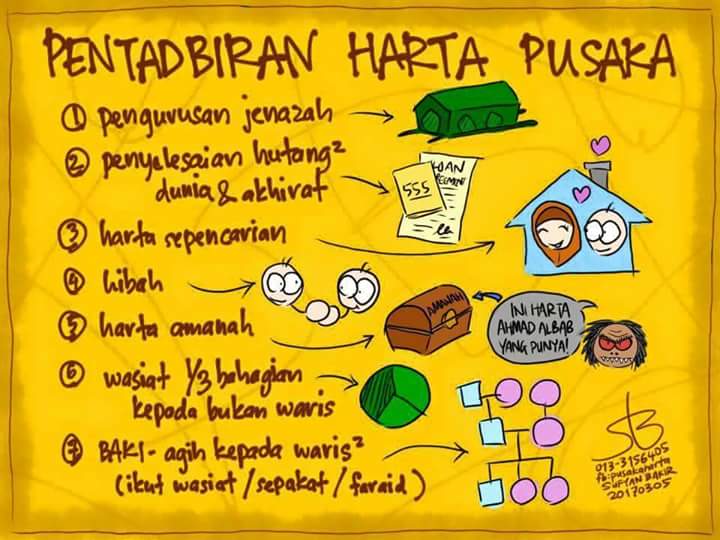 PENTADBIRAN HARTA PUSAKA
1 pengurusan jenazah
2 penyelesaian hutang²
dunia & akhirat
555
LOAN
3 harta sepencarian
4 hibah
5 harta amanah
AMANAH
INI HARTA
AHMAD ALBAB
YANG PUNYA!
6 wasiat 1/3 bahagian
kepada bukan waris
7 BAKI - agih kepada waris²
(ikut wasiat/sepakat/faraid)
013-3156405
fb:pusakaharta
SUFYAN BAKIR
20170305